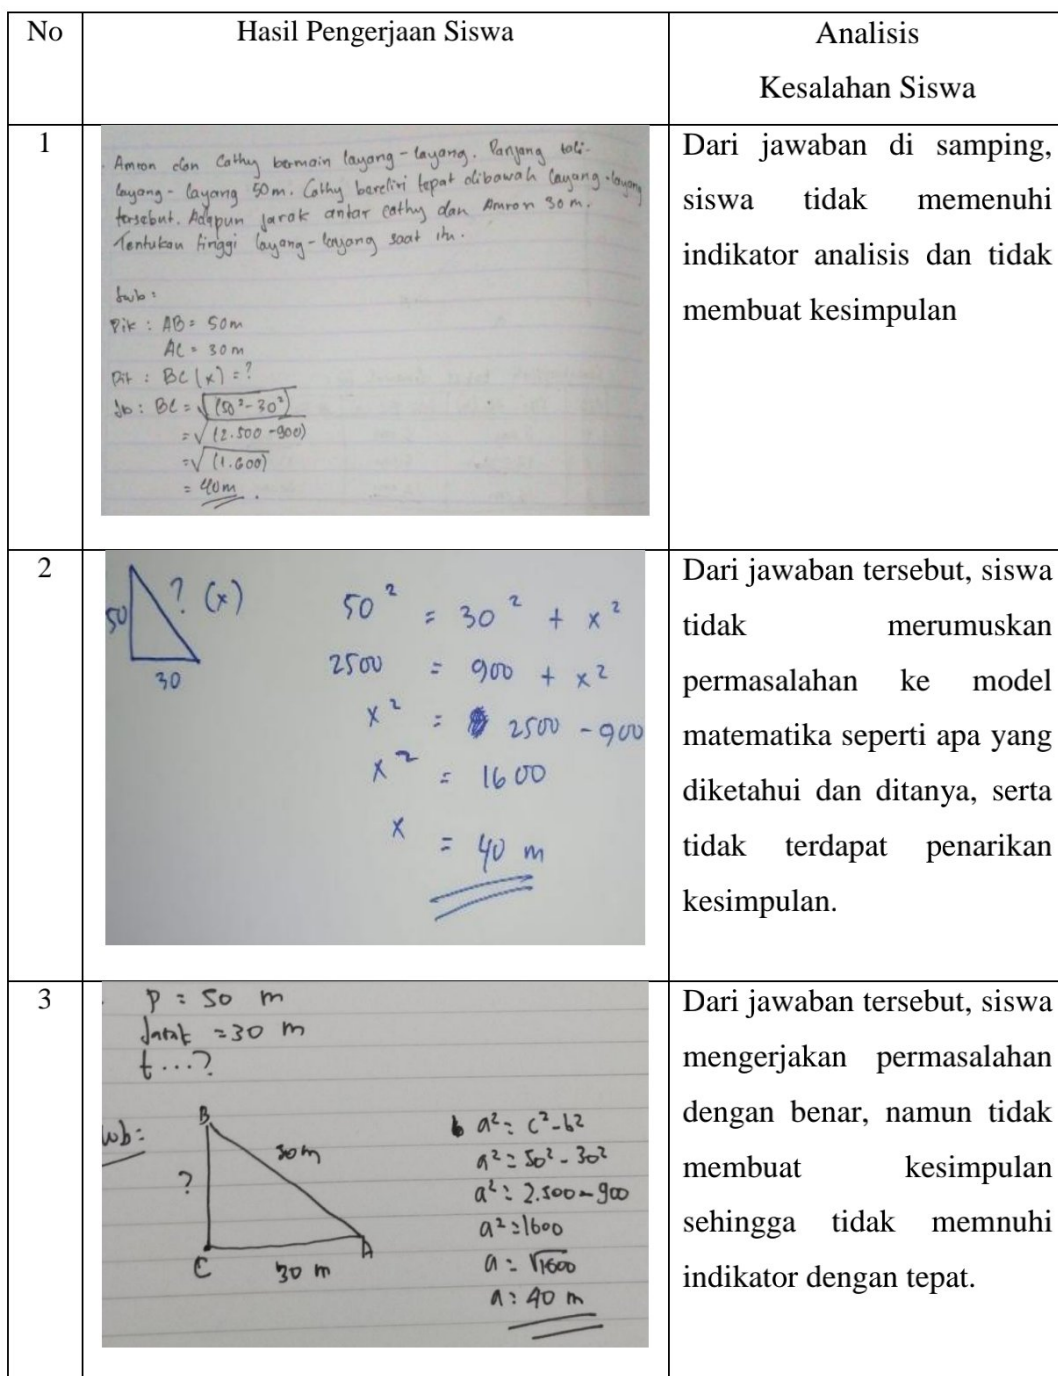 No
Hasil Pengerjaan Siswa
Analisis
Kesalahan Siswa
1
Amron dan Cathy bermain layang-layang. Panjang tali
layang-layang 50m. Cathy berdiri tepat dibawah layang-layang
tersebut. Adapun jarak antar Cathy dan Amron 30 m.
Tentukan tinggi layang-layang saat itu.
Jwb:
Dik : AB = 50m
AC = 30 m
Dit : BC (x) = ?
Jb : BC = √(50² - 30²)
= √(2.500 - 900)
= √(1.600)
= 40m.
Dari jawaban di samping,
siswa tidak memenuhi
indikator analisis dan tidak
membuat kesimpulan
2
50
? (x)
30
50² = 30² + x²
2500 = 900 + x²
x² = 2500 - 900
x² = 1600
x = 40 m
Dari jawaban tersebut, siswa
tidak merumuskan
permasalahan ke model
matematika seperti apa yang
diketahui dan ditanya, serta
tidak terdapat penarikan
kesimpulan.
3
p = 50 m
Jarak = 30 m
t...?
wb:
B
50m
?
C
30 m
A
a² = c² - b²
a² = 50² - 30²
a² = 2.500 - 900
a² = 1600
a = √1600
a = 40 m
Dari jawaban tersebut, siswa
mengerjakan permasalahan
dengan benar, namun tidak
membuat kesimpulan
sehingga tidak memnuhi
indikator dengan tepat.